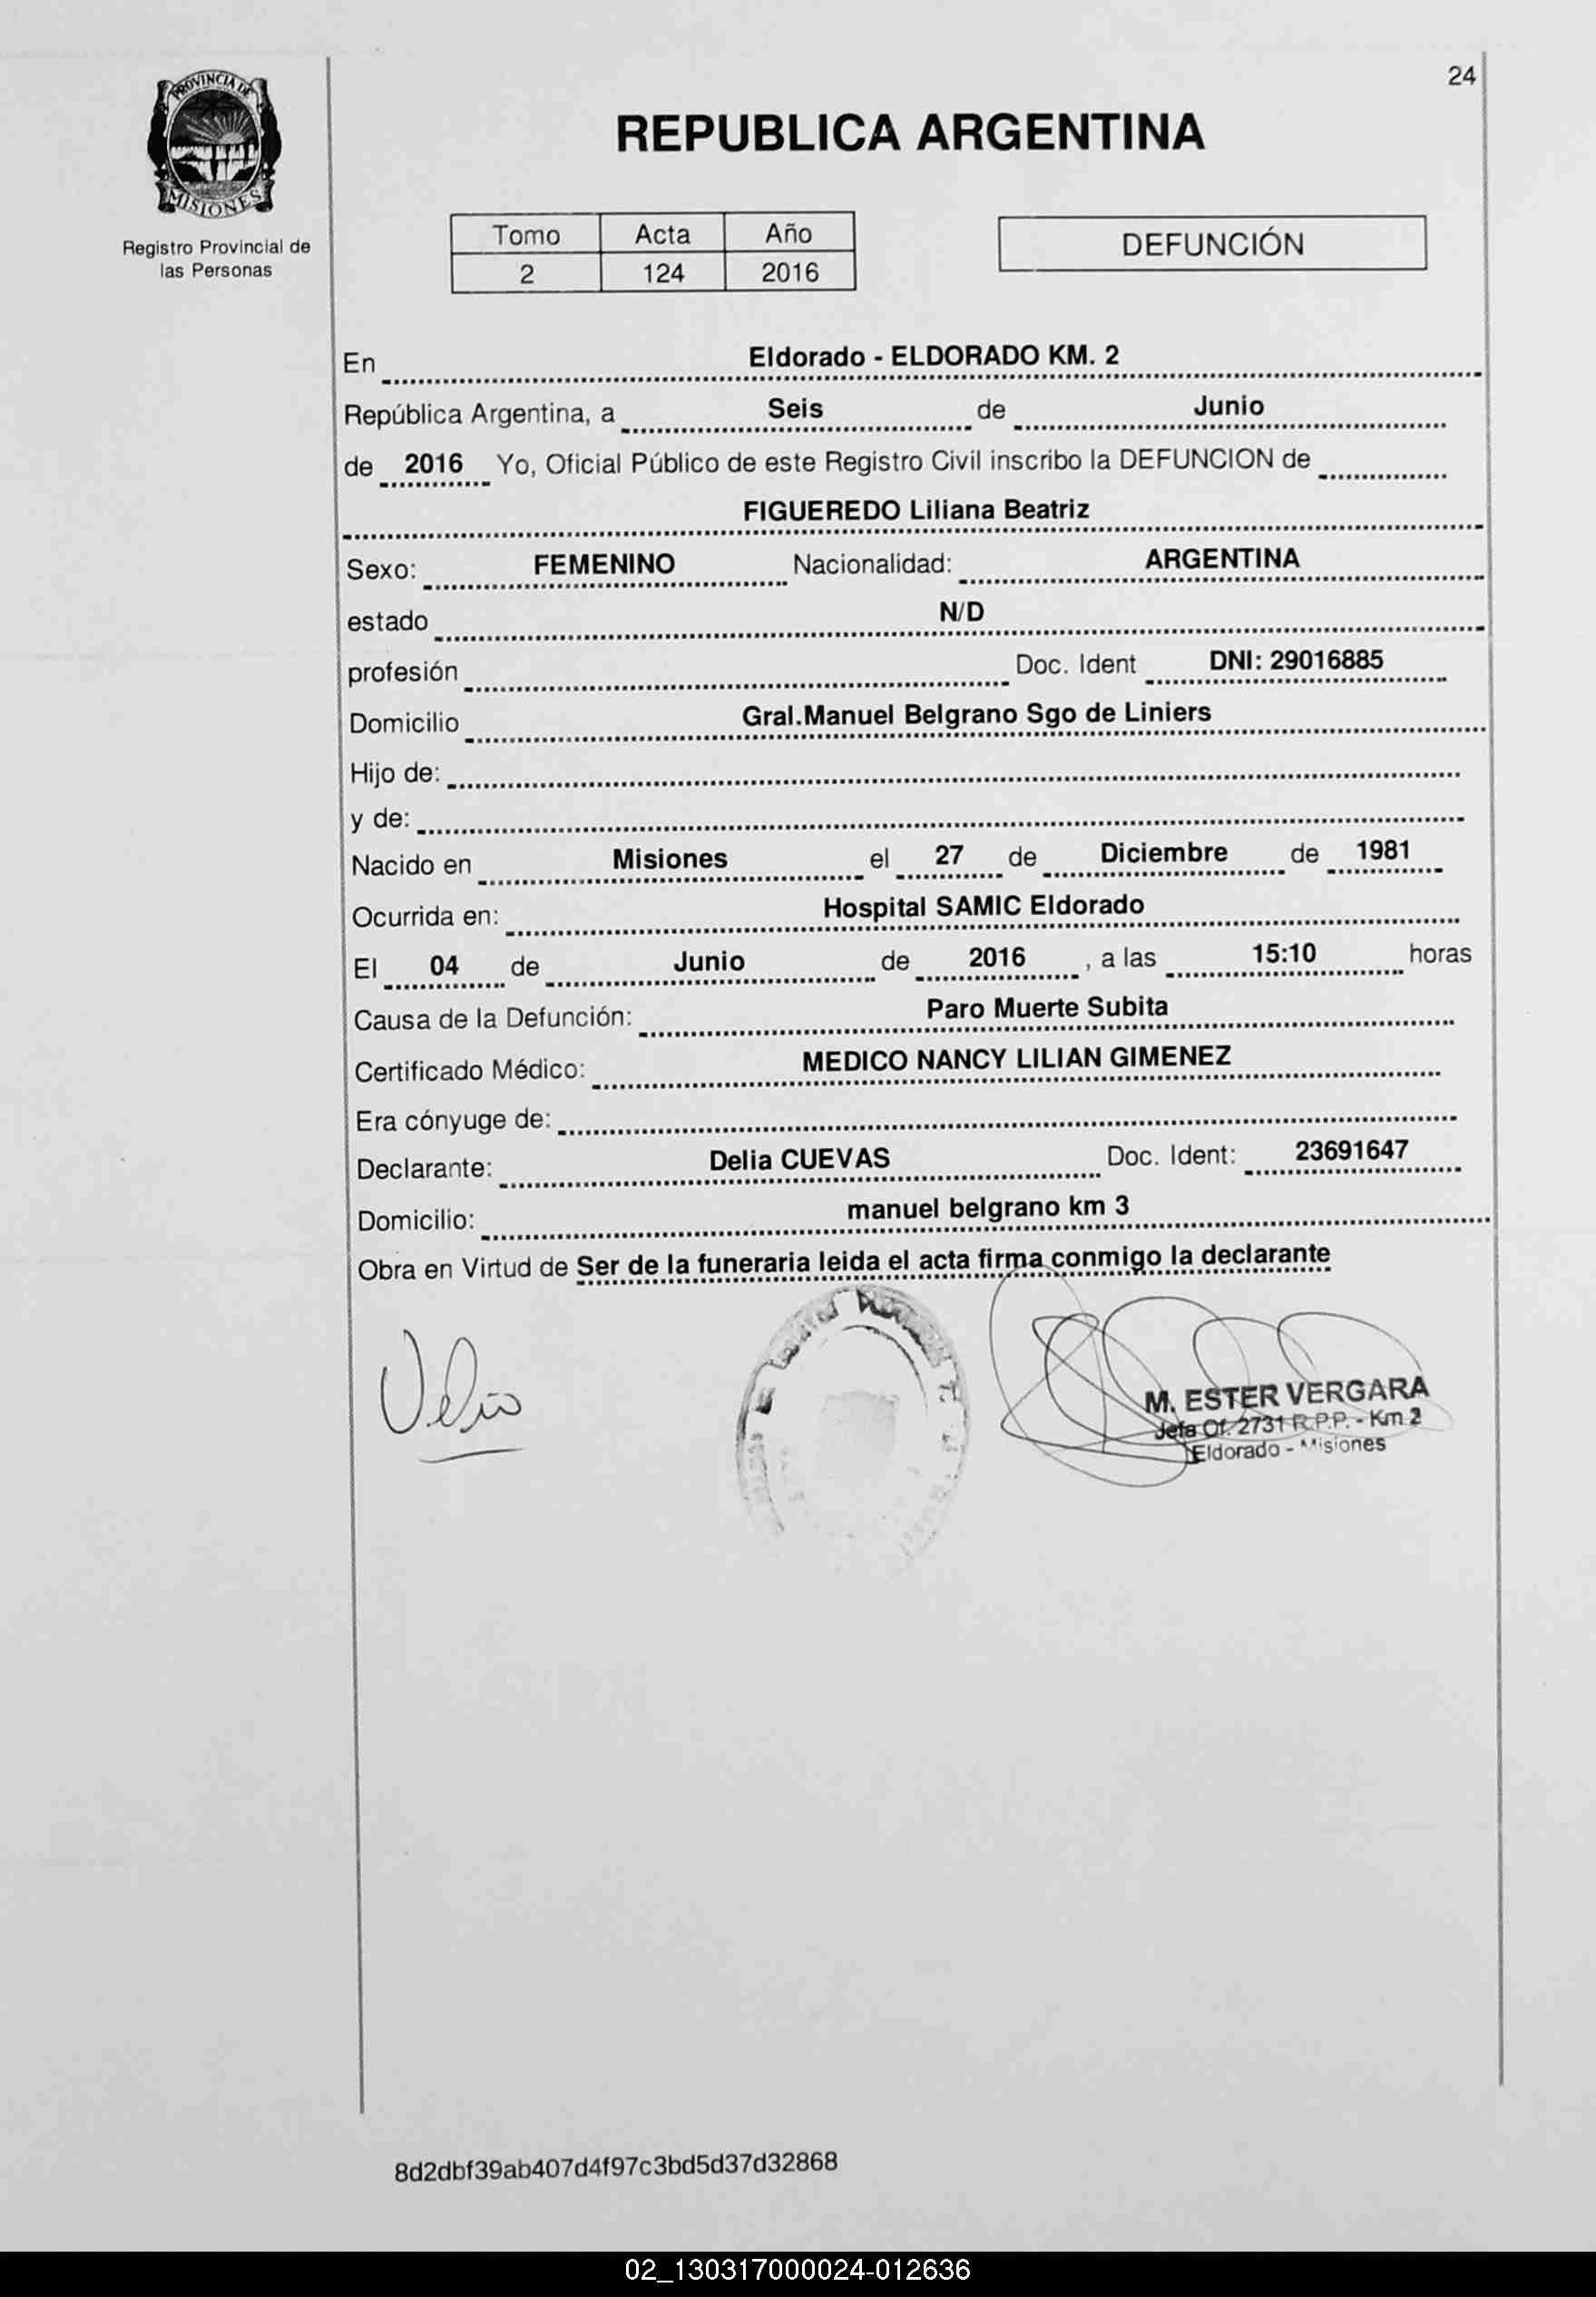 24
PROVINCIA DE
MISIONES
Registro Provincial de
las Personas
REPUBLICA ARGENTINA
Tomo Acta Año
2 124 2016
DEFUNCIÓN
En Eldorado - ELDORADO KM. 2
República Argentina, a Seis de Junio
de 2016 Yo, Oficial Público de este Registro Civil inscribo la DEFUNCION de
FIGUEREDO Liliana Beatriz
Sexo: FEMENINO Nacionalidad: ARGENTINA
estado N/D
profesión Doc. Ident DNI: 29016885
Domicilio Gral.Manuel Belgrano Sgo de Liniers
Hijo de:
y de:
Nacido en Misiones el 27 de Diciembre de 1981
Ocurrida en: Hospital SAMIC Eldorado
El 04 de Junio de 2016 , a las 15:10 horas
Causa de la Defunción: Paro Muerte Subita
Certificado Médico: MEDICO NANCY LILIAN GIMENEZ
Era cónyuge de:
Declarante: Delia CUEVAS Doc. Ident: 23691647
Domicilio: manuel belgrano km 3
Obra en Virtud de Ser de la funeraria leida el acta firma conmigo la declarante
M. ESTER VERGARA
Jefa Of. 2731 R.P.P. - Km 2
Eldorado - Misiones
8d2dbf39ab407d4f97c3bd5d37d32868
02_130317000024-012636